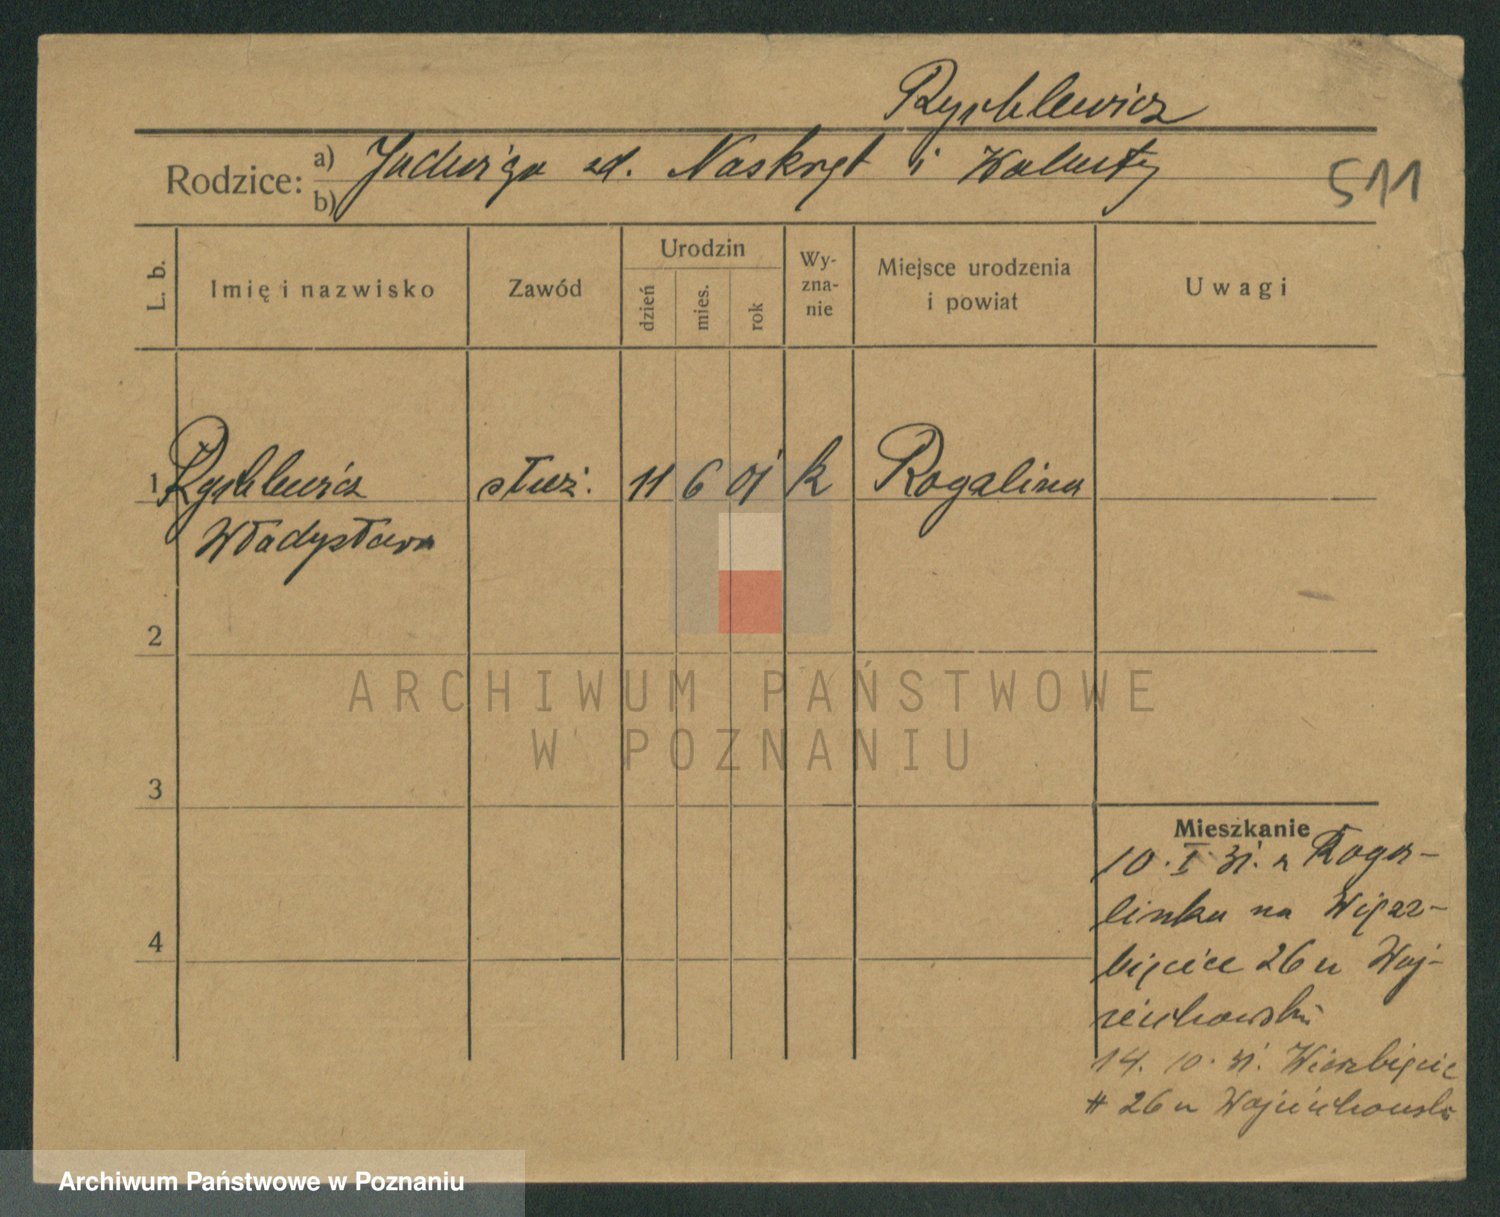 Rychlewicz
Rodzice: a) Jadwiga zd. Naskręt i Walenty
b)
511
L. b.
Imię i nazwisko
Zawód
Urodzin
dzień
mies.
rok
Wy-
zna-
nie
Miejsce urodzenia
i powiat
Uwagi
1 Rychlewicz służ. 11 6 01 k Rogalina
Władysława
2
3
4
Mieszkanie
10. I 31. z Roga-
linka na Wierz-
bięcice 26 u Woj-
ciechowski
14. 10. 31. Wierzbięcic
# 26 u Wojciechowsk
ARCHIWUM PAŃSTWOWE
W POZNANIU
Archiwum Państwowe w Poznaniu